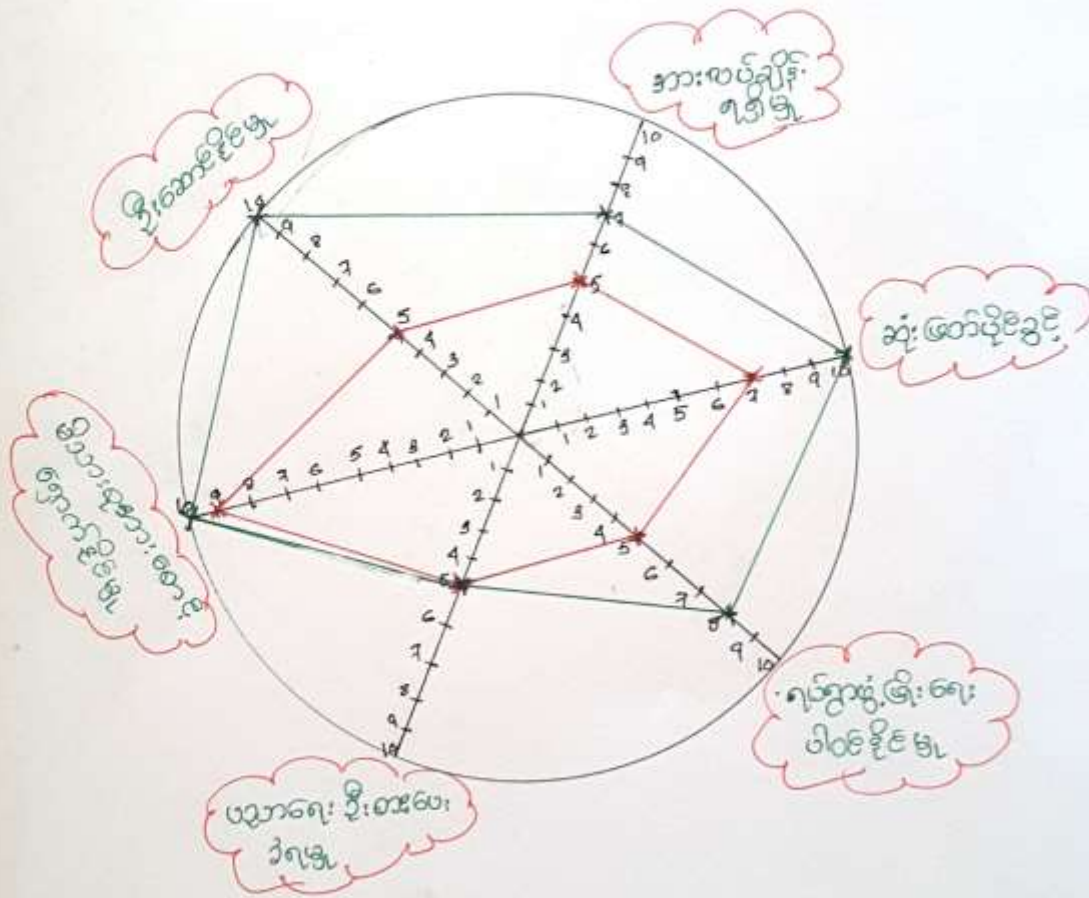 အားလပ်ချိန်
ရရှိမှု
ဦးဆောင်နိုင်မှု
ဆုံးဖြတ်ပိုင်ခွင့်
မိသားစုအားထောက်ပံ့
ရပ်ရွာဖွံ့ဖြိုးရေး
ပါဝင်နိုင်မှု
ပညာရေး ဦးစားပေး
ခံရမှု
10
9
8
7
6
5
4
3
2
1
10
9
8
7
6
5
4
3
2
1
1 2 3 4 5 6 7 8 9 10
10 9 8 7 6 5 4 3 2 1
1
2
3
4
5
6
7
8
9
10
1
2
3
4
5
6
7
8
9
10